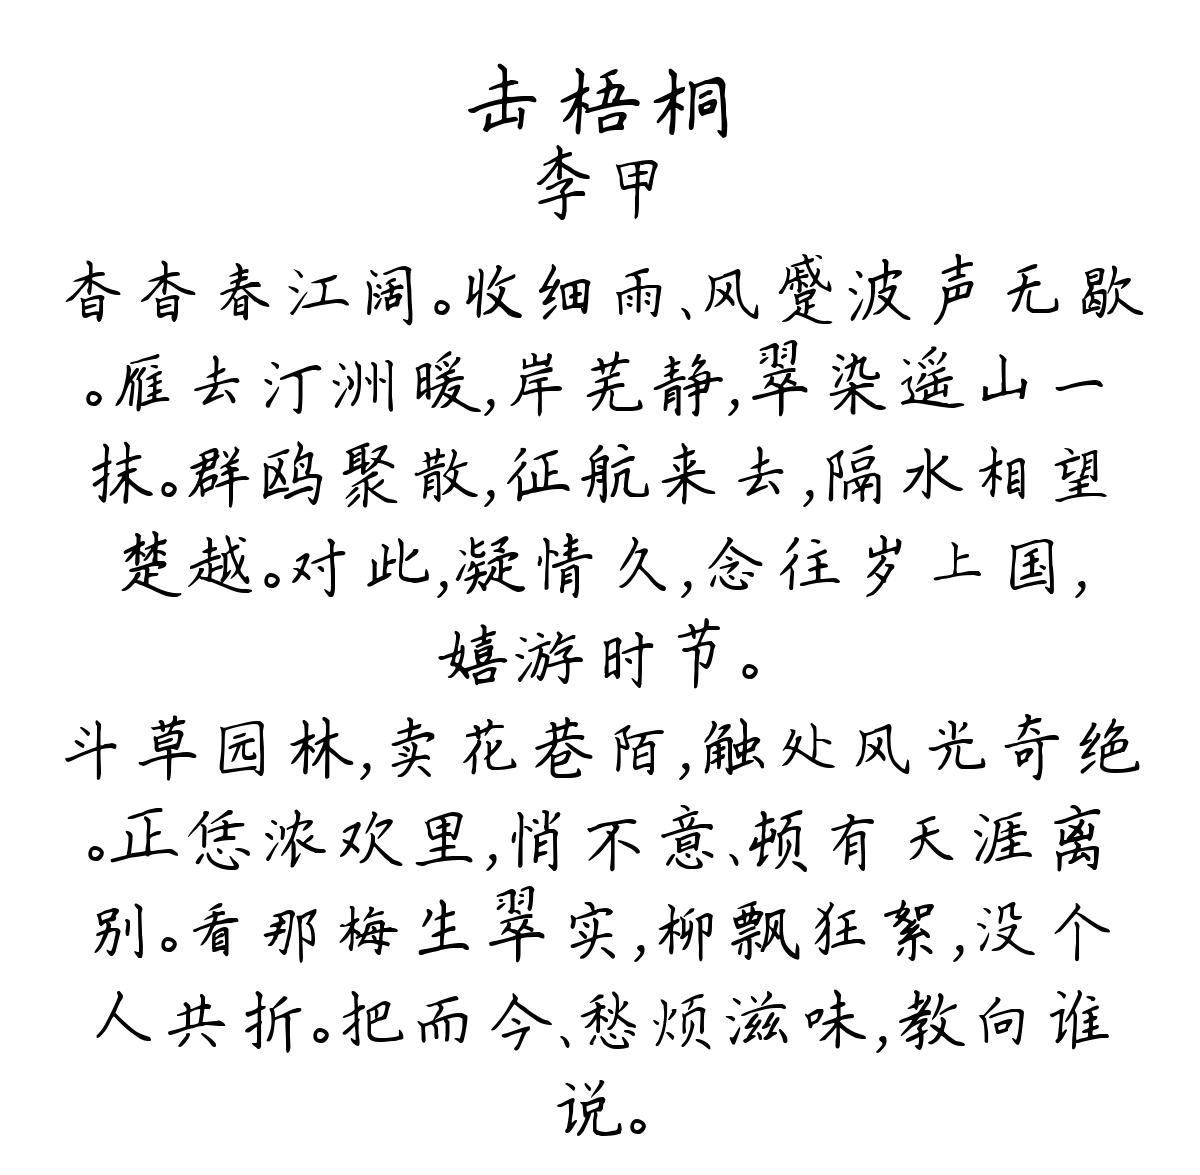 击梧桐
李甲
杳杳春江阔。收细雨、风蹙波声无歇
。雁去汀洲暖,岸芜静,翠染遥山一
抹。群鸥聚散,征航来去,隔水相望
楚越。对此,凝情久,念往岁上国,
嬉游时节。
斗草园林,卖花巷陌,触处风光奇绝
。正恁浓欢里,悄不意、顿有天涯离
别。看那梅生翠实,柳飘狂絮,没个
人共折。把而今、愁烦滋味,教向谁
说。